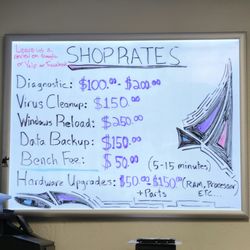 Leave us a
review on Google
or Yelp or Facebook
SHOP RATES
Diagnostic: $100.00 - $200.00
Virus Cleanup: $150.00
Windows Reload: $250.00
Data Backup: $150.00
Beach Fee: $50.00 (5-15 minutes)
Hardware Upgrades: $50.00 - $150.00 (RAM, Processor
+ Parts ETC...